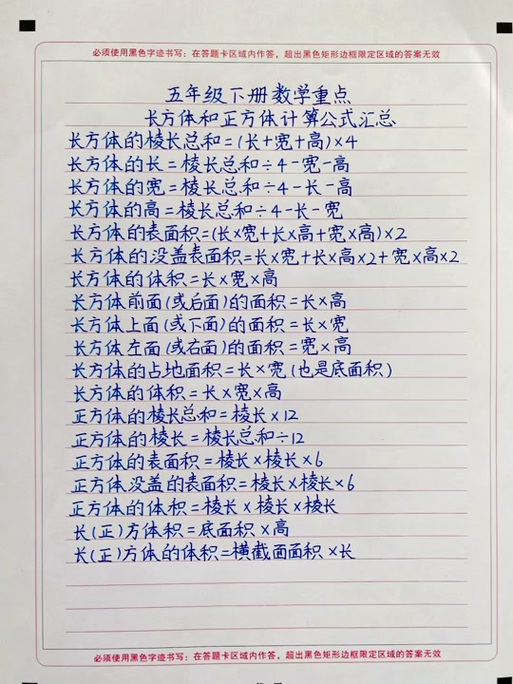 必须使用黑色字迹书写：在答题卡区域内作答，超出黑色矩形边框限定区域的答案无效
五年级下册数学重点
长方体和正方体计算公式汇总
长方体的棱长总和=(长+宽+高)×4
长方体的长=棱长总和÷4-宽-高
长方体的宽=棱长总和÷4-长-高
长方体的高=棱长总和÷4-长-宽
长方体的表面积=(长×宽+长×高+宽×高)×2
长方体的没盖表面积=长×宽+长×高×2+宽×高×2
长方体的体积=长×宽×高
长方体前面(或后面)的面积=长×高
长方体上面(或下面)的面积=长×宽
长方体左面(或右面)的面积=宽×高
长方体的占地面积=长×宽(也是底面积)
长方体的体积=长×宽×高
正方体的棱长总和=棱长×12
正方体的棱长=棱长总和÷12
正方体的表面积=棱长×棱长×6
正方体没盖的表面积=棱长×棱长×6
正方体的体积=棱长×棱长×棱长
长(正)方体积=底面积×高
长(正)方体的体积=横截面面积×长
必须使用黑色字迹书写：在答题卡区域内作答，超出黑色矩形边框限定区域的答案无效